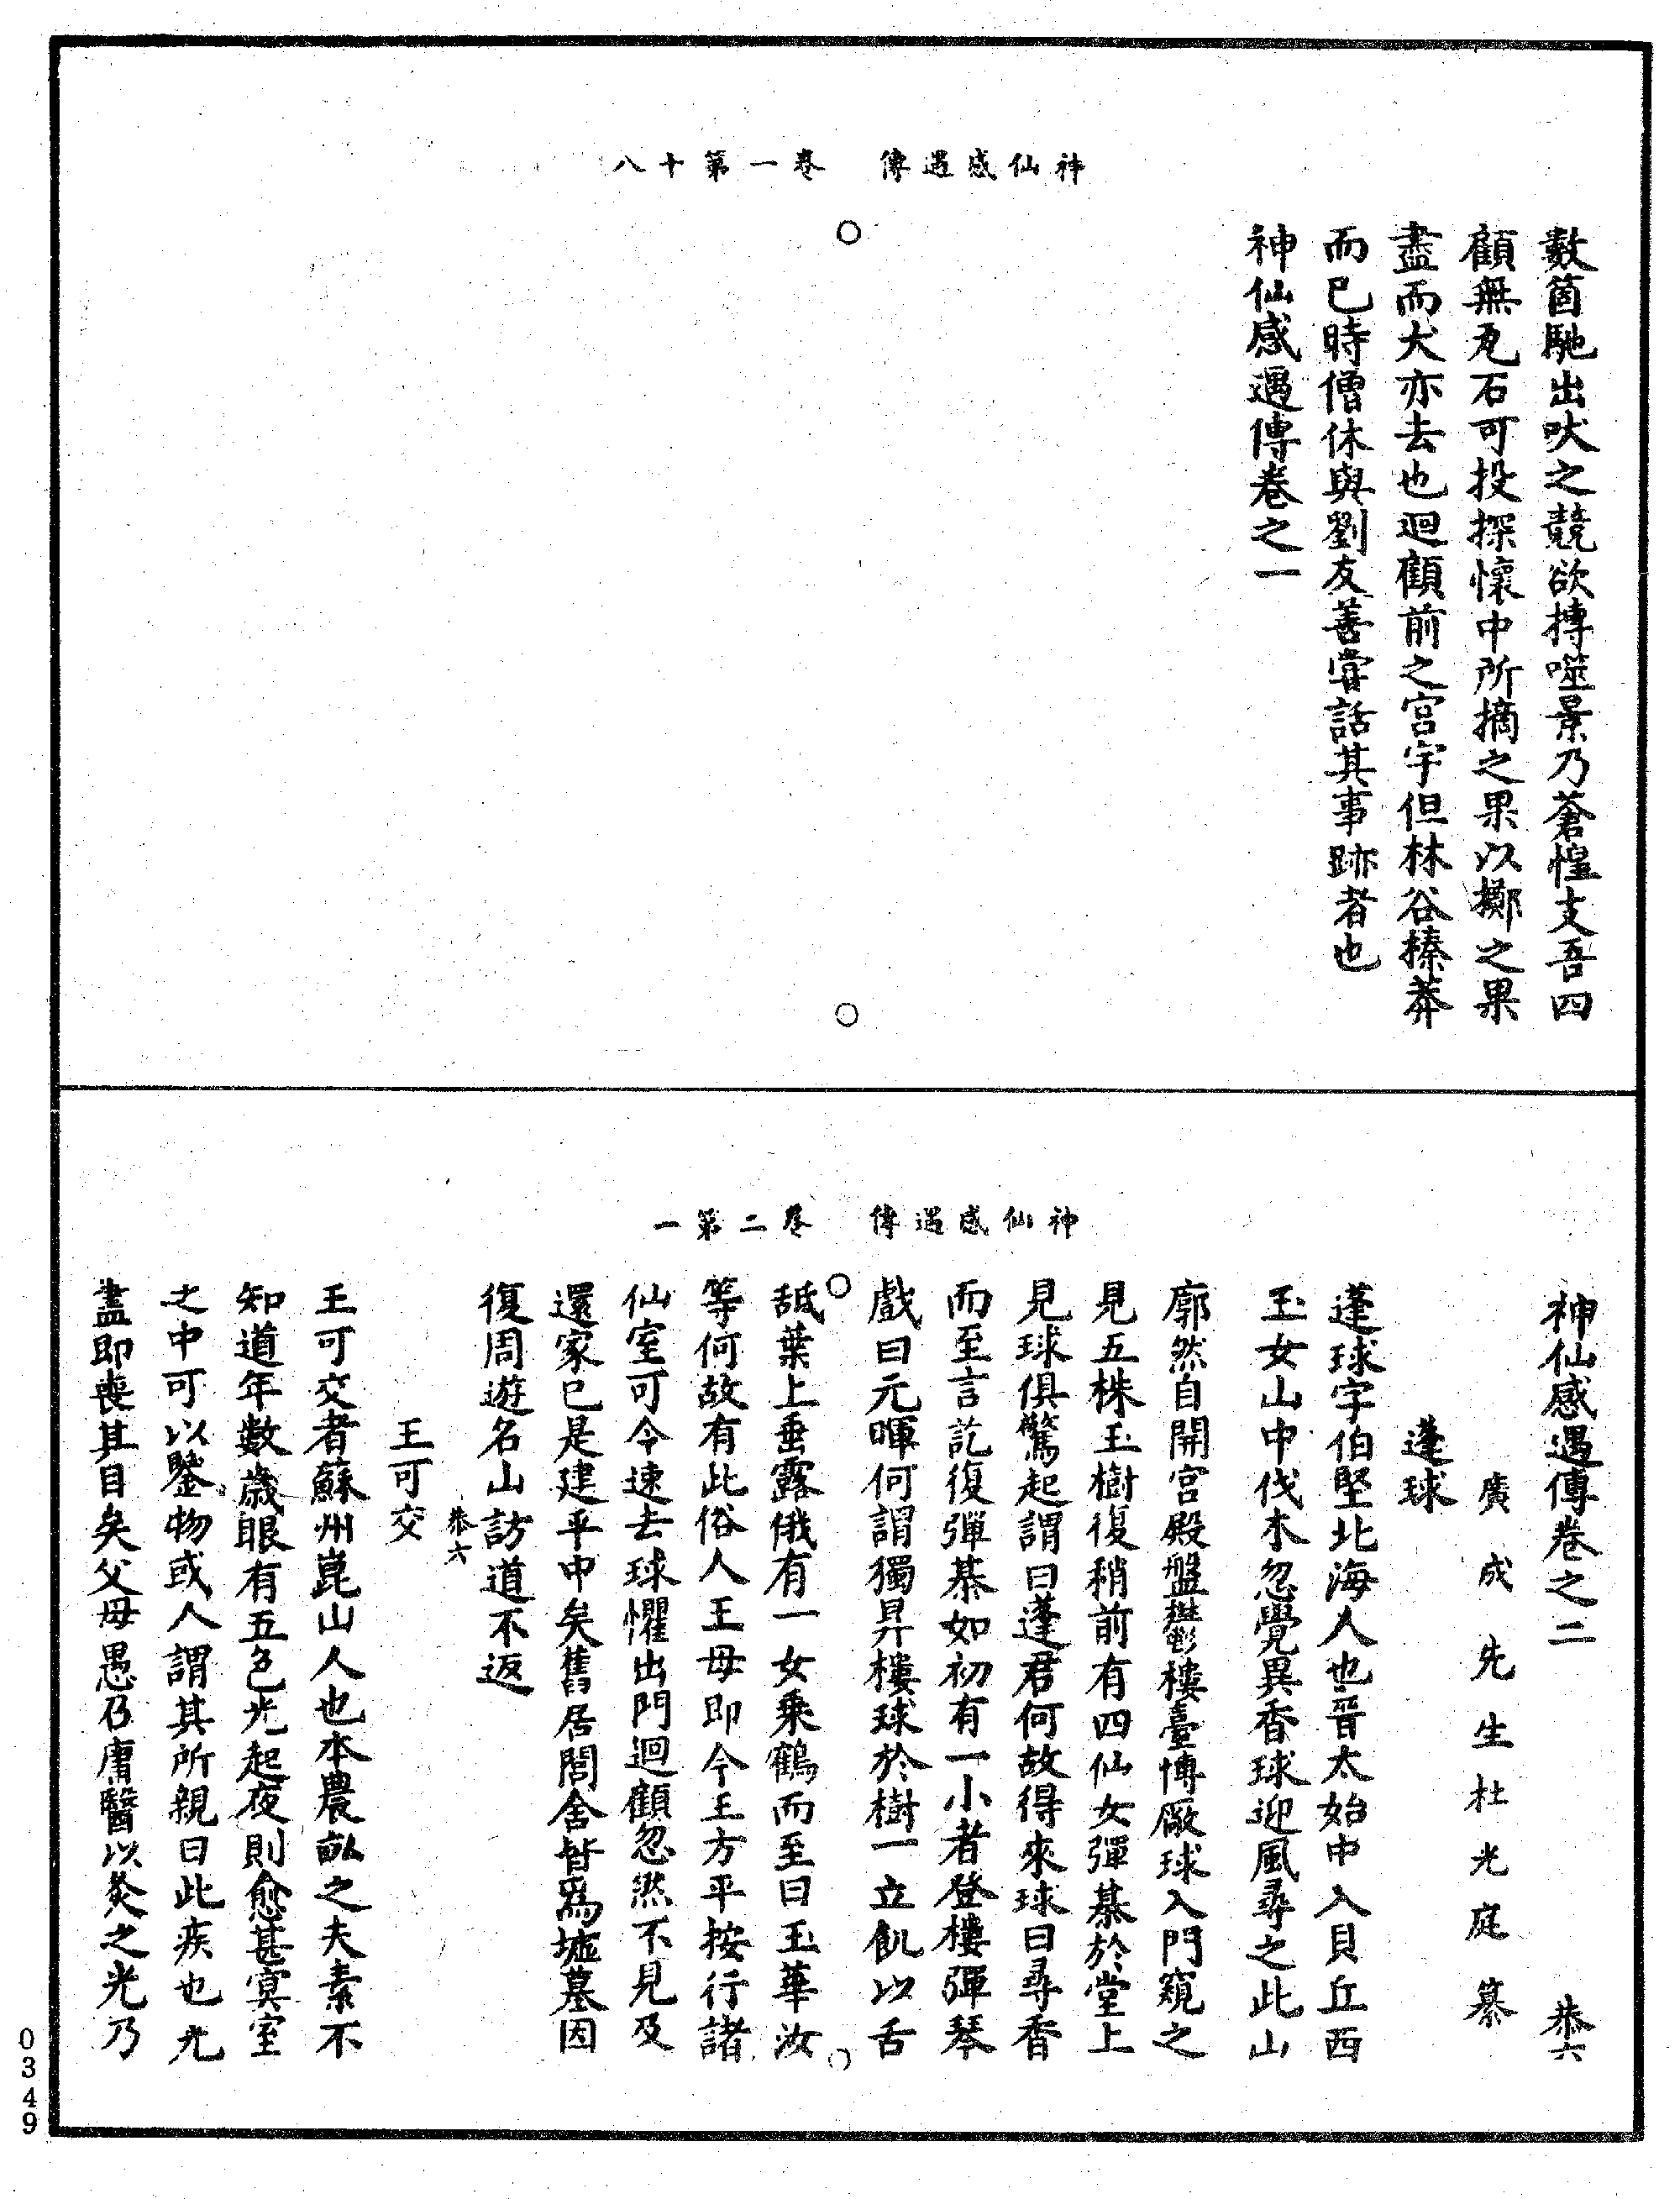 神仙感遇傳　卷一第十八
數箇馳出吠之競欲摶噬景乃蒼惶支吾四
顧無瓦石可投探懷中所摘之果以擲之果
盡而犬亦去也迴顧前之宮宇但林谷榛莽
而已時僧休與劉友善嘗話其事跡者也
神仙感遇傳卷之一
神仙感遇傳　卷二第一
神仙感遇傳卷之二　恭六
廣成先生杜光庭纂
蓬球
蓬球字伯堅北海人也晉太始中入貝丘西
玉女山中伐木忽覺異香球迎風尋之此山
廓然自開宮殿盤鬱樓臺博敞球入門窺之
見五株玉樹復稍前有四仙女彈棊於堂上
見球俱驚起謂曰蓬君何故得來球曰尋香
而至言訖復彈棊如初有一小者登樓彈琴
戲曰元暉何謂獨昇樓球於樹一立飢以舌
舐葉上垂露俄有一女乘鶴而至曰玉華汝
等何故有此俗人王母即令王方平按行諸
仙室可令速去球懼出門迴顧忽然不見及
還家已是建平中矣舊居閭舍皆爲墟墓因
復周遊名山訪道不返
恭六
王可交
王可交者蘇州崑山人也本農畝之夫素不
知道年數歲眼有五色光起夜則愈甚冥室
之中可以鑒物或人謂其所親曰此疾也光
盡即喪其目矣父母愚乃庸醫以灸之光乃
0349